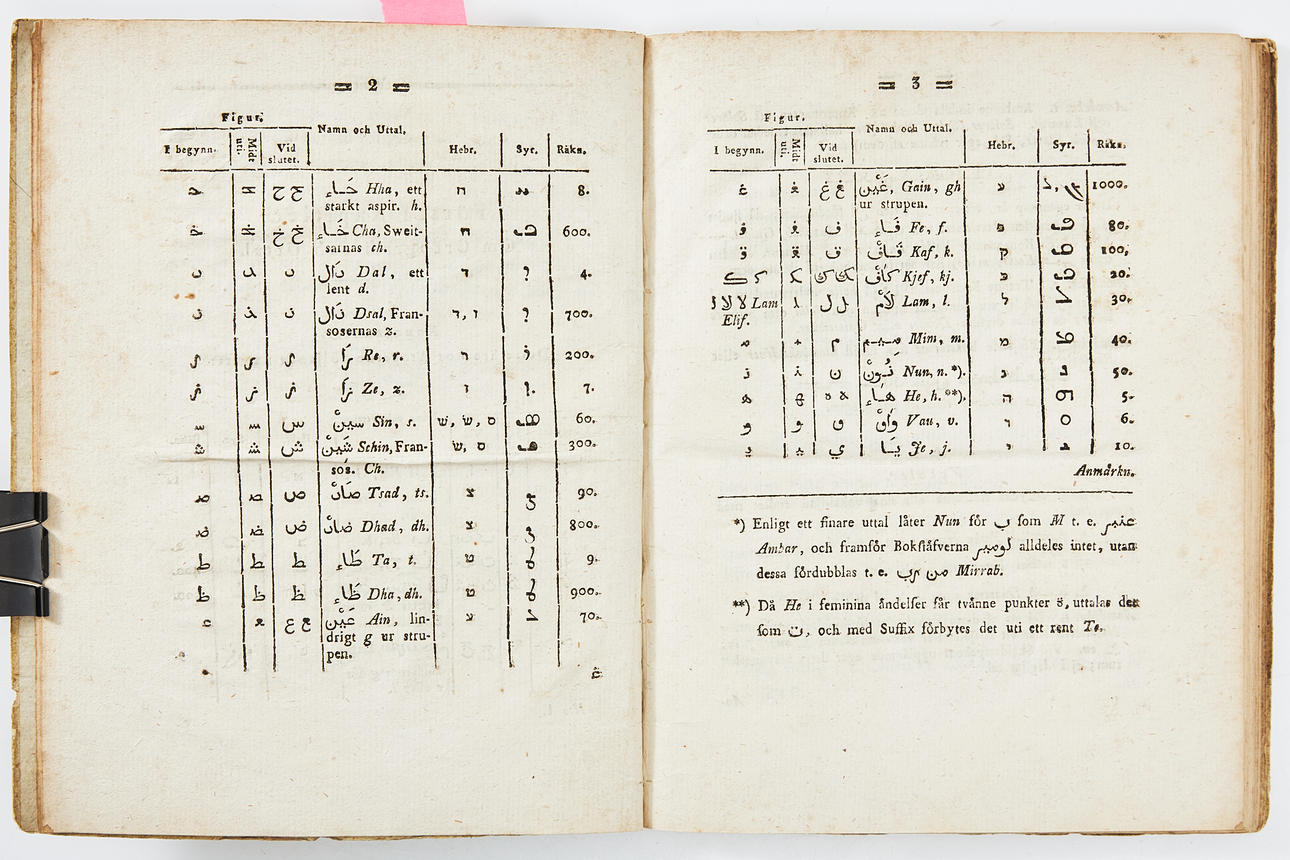 = 2 =
Figur.
Namn och Uttal.
I begynn. Midt uti. Vid slutet. Hebr. Syr. Räkn.
حـ ـحـ ح ح حَـاء Hha, ett ח 8.
starkt aspir. h.
خـ ـخـ خ خ خَـاء Cha, Sweit- ח 600.
sarnas ch.
دَال Dal, ett ד 4.
lent d.
ذَال Dsal, Fran- ד, ז 700.
sosernas z.
Re, r. ר 200.
Ze, z. ז 7.
سـ ـسـ س سيـنْ Sin, s. ש, ש, ס 60.
شـ ـشـ ش شَيـنْ Schin, Fran- ש, ס 300.
sos. Ch.
صـ ـصـ ص صَادْ Tsad, ts. צ 90.
ضـ ـضـ ض ضَادْ Dhad, dh. צ 800.
ط ط ط طَـاء Ta, t. ט 9.
ظ ظ ظ ظَـاء Dha, dh. ט 900.
عـ ـعـ ع ع عَيْن Ain, lin- ע 70.
drigt g ur stru-
pen.
غ
= 3 =
Figur.
Namn och Uttal.
I begynn. Midt uti. Vid slutet. Hebr. Syr. Räkn.
غـ ـغـ غ غ غَيْن, Gain, gh ע 1000.
ur strupen.
فـ ـفـ ف فَـاء Fe, f. פ 80.
قـ ـقـ ق قَـافْ Kaf, k. ק 100,
كـ ك ك كَافْ Kjef, kj. כ 20.
لا لا Lam ل ل لَامْ Lam, l. ל 30.
Elif.
مـ ـمـ م مـيـم Mim, m. מ 40.
نـ ـنـ ن نُـونْ Nun, n. *). נ 50.
هـ ـهـ ه هَـاء He, h. **). ה 5.
و و و وَاوْ Vau, v. ו 6.
يـ ـيـ ي يَـا Je, j. י 10.
Anmärkn.
*) Enligt ett finare uttal låter Nun för ب som M t. e. عنبر
Ambar, och framför Bokstäfverna لوميـر alldeles intet, utan
dessa fördubblas t. e. من رب Mirrab.
**) Då He i feminina ändelser får tvänne punkter ة, uttalas det
som ت, och med Suffix förbytes det uti ett rent Te.